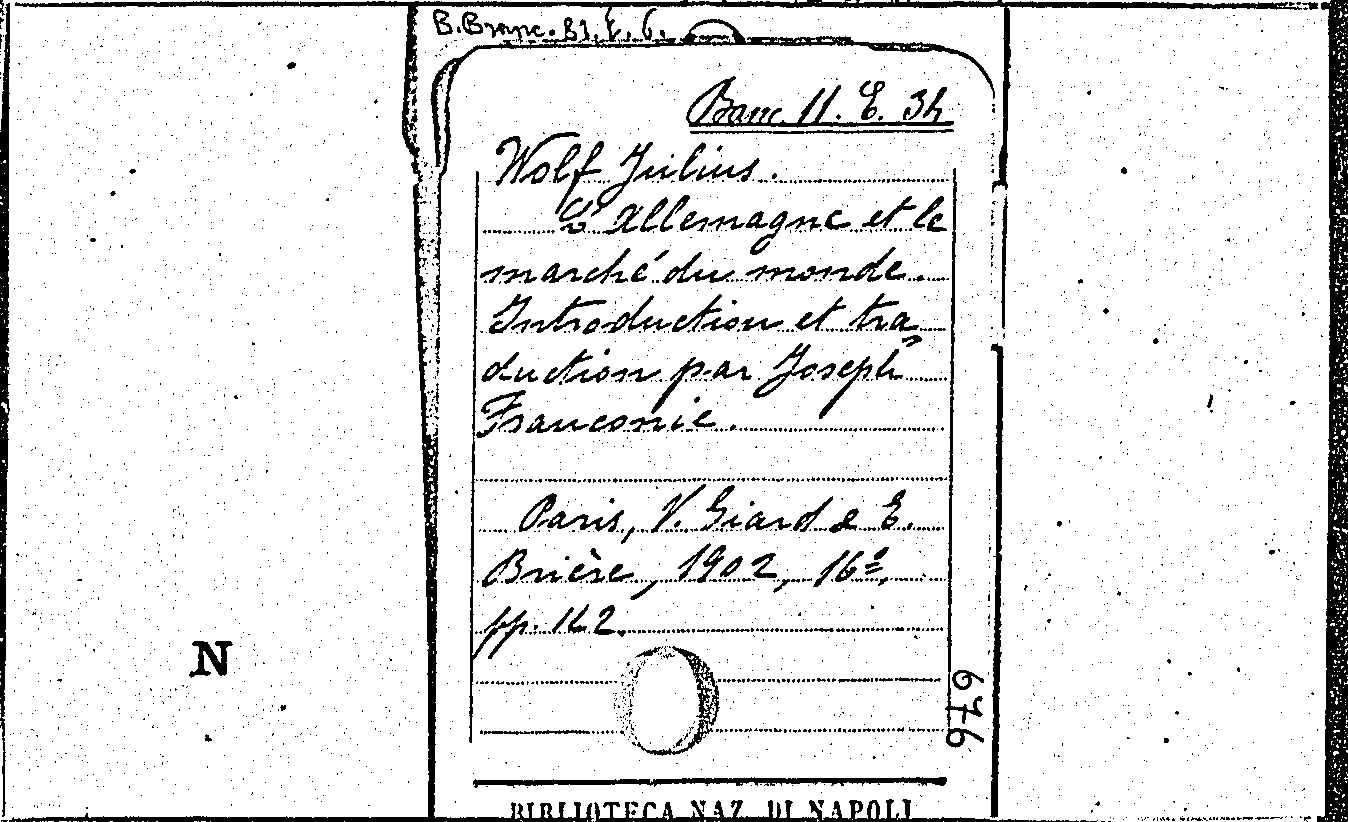 B. Branc. 81. E. 6.
Banc. 11. E. 34
Wolf Julius.
L'Allemagne et le
marché du monde.
Introduction et tra
duction par Joseph
Franconie.
Paris, V. Giard & E.
Brière, 1902, 16º,
pp.
676
N
BIBLIOTECA NAZ. DI NAPOLI